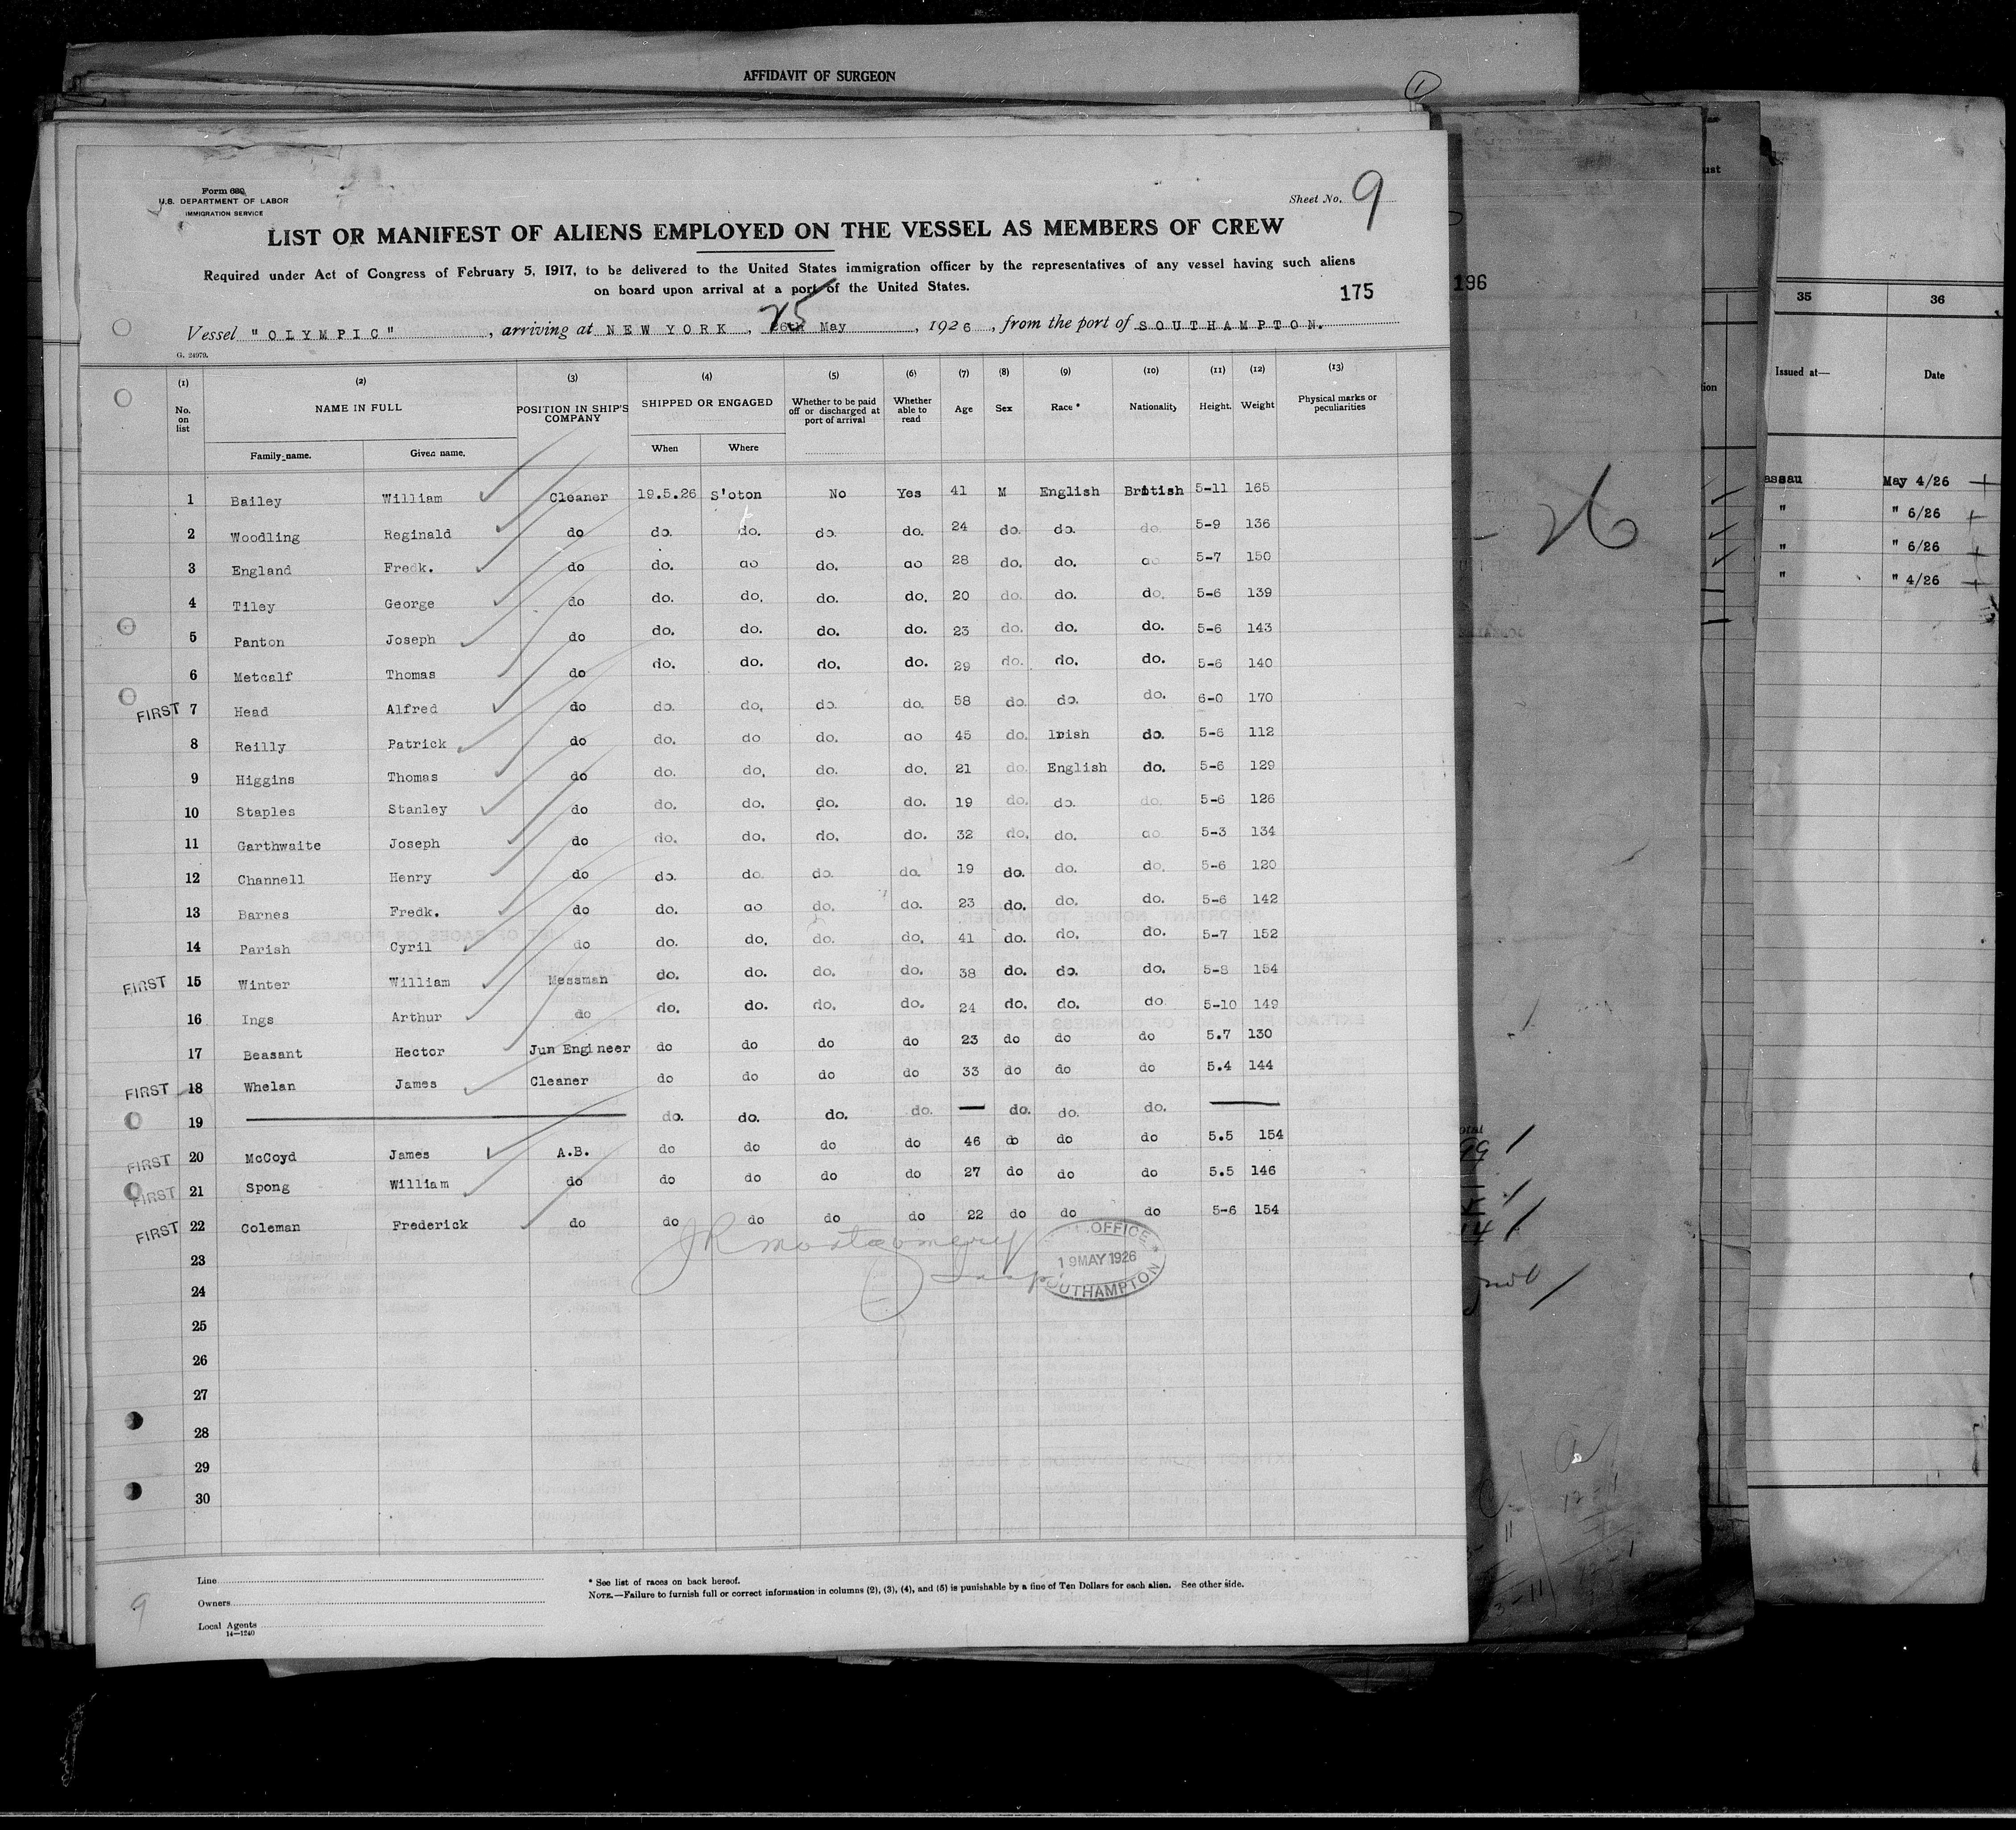 AFFIDAVIT OF SURGEON
1
Form 680
U.S. DEPARTMENT OF LABOR
IMMIGRATION SERVICE
Sheet No. 9
LIST OR MANIFEST OF ALIENS EMPLOYED ON THE VESSEL AS MEMBERS OF CREW
Required under Act of Congress of February 5, 1917, to be delivered to the United States immigration officer by the representatives of any vessel having such aliens
on board upon arrival at a port of the United States.
175
196
Vessel "OLYMPIC", arriving at NEW YORK, 26th May 25, 1926, from the port of SOUTHAMPTON.
G. 24979.
(1) (2) (3) (4) (5) (6) (7) (8) (9) (10) (11) (12) (13)
No. on list NAME IN FULL POSITION IN SHIP'S COMPANY SHIPPED OR ENGAGED Whether to be paid off or discharged at port of arrival Whether able to read Age Sex Race * Nationality Height. Weight Physical marks or peculiarities
Family name. Given name. When Where
1 Bailey William Cleaner 19.5.26 S'oton No Yes 41 M English British 5-11 165
2 Woodling Reginald do do. do. do. do. 24 do. do. do. 5-9 136
3 England Fredk. do do. do do. do 28 do. do. do 5-7 150
4 Tiley George do do. do. do. do. 20 do. do. do. 5-6 139
5 Panton Joseph do do. do. do. do. 23 do. do. do. 5-6 143
6 Metcalf Thomas do do. do. do. do. 29 do. do. do. 5-6 140
FIRST 7 Head Alfred do do. do. do. do. 58 do. do. do. 6-0 170
8 Reilly Patrick do do. do do. do 45 do. Irish do. 5-6 112
9 Higgins Thomas do do. do. do. do. 21 do. English do. 5-6 129
10 Staples Stanley do do. do. do. do. 19 do. do. do. 5-6 126
11 Garthwaite Joseph do do. do. do. do. 32 do. do. do. 5-3 134
12 Channell Henry do do. do. do. do. 19 do. do. do. 5-6 120
13 Barnes Fredk. do do. do do. do. 23 do. do. do. 5-6 142
14 Parish Cyril do do. do. do. do. 41 do. do. do. 5-7 152
FIRST 15 Winter William Messman do. do. do. do. 38 do. do. do. 5-8 154
16 Ings Arthur do do. do. do. do. 24 do. do. do 5-10 149
17 Beasant Hector Jun Engineer do do do do 23 do do do 5.7 130
FIRST 18 Whelan James Cleaner do do do do 33 do do do 5.4 144
19 do. do. do. do. — do. do. do. —
FIRST 20 McCoyd James A.B. do do do do 46 do do do 5.5 154
FIRST 21 Spong William do do do do do 27 do do do 5.5 146
FIRST 22 Coleman Frederick do do do do do 22 do do do 5-6 154
23
JR Montgomery
Insp
OFFICE
19 MAY 1926
OUTHAMPTON
24
25
26
27
28
29
30
Line
Owners
Local Agents
14—1240
* See list of races on back hereof.
NOTE.—Failure to furnish full or correct information in columns (2), (3), (4), and (5) is punishable by a fine of Ten Dollars for each alien. See other side.
9
26
35 36
Issued at— Date
assau May 4/26
" " 6/26
" " 6/26
" " 4/26